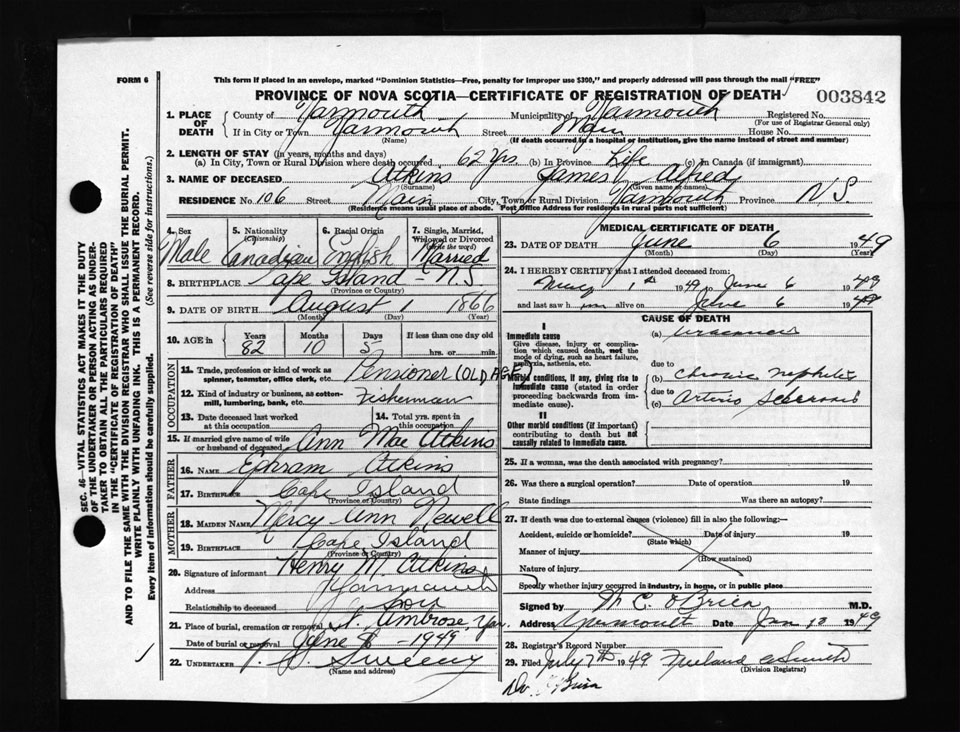 FORM 6
This form if placed in an envelope, marked "Dominion Statistics—Free, penalty for improper use $300," and properly addressed will pass through the mail "FREE"
PROVINCE OF NOVA SCOTIA—CERTIFICATE OF REGISTRATION OF DEATH
003842
1. PLACE OF DEATH
County of Yarmouth Municipality of Yarmouth Registered No.
(For use of Registrar General only)
If in City or Town Yarmouth Street Main House No.
(Name) (If death occurred in a hospital or institution, give the name instead of street and number)
2. LENGTH OF STAY (in years, months and days)
(a) In City, Town or Rural Division where death occurred 62 Yrs. (b) In Province Life (c) In Canada (if immigrant)
3. NAME OF DECEASED Atkins James Alfred
(Surname) (Given name or names)
RESIDENCE No. 106 Street Main City, Town or Rural Division Yarmouth Province N.S.
(Residence means usual place of abode. Post Office Address for residents in rural parts not sufficient)
4. Sex 5. Nationality (Citizenship) 6. Racial Origin 7. Single, Married, Widowed or Divorced (write the word)
Male Canadian English Married
8. BIRTHPLACE Cape Island - N.S
(Province or Country)
9. DATE OF BIRTH August 1 1866
(Month) (Day) (Year)
10. AGE in Years Months Days If less than one day old
82 10 5 hrs. or min.
OCCUPATION
11. Trade, profession or kind of work as spinner, teamster, office clerk, etc. Pensioner (OLD AGE)
12. Kind of industry or business, as cotton-mill, lumbering, bank, etc. Fisherman
13. Date deceased last worked at this occupation 14. Total yrs. spent in this occupation
15. If married give name of wife or husband of deceased Ann Mae Atkins
FATHER
16. NAME Ephram Atkins
17. BIRTHPLACE Cape Island
(Province or Country)
MOTHER
18. MAIDEN NAME Mercy Ann Newell
19. BIRTHPLACE Cape Island
(Province or Country)
20. Signature of informant Henry M. Atkins
Address Yarmouth
Relationship to deceased Son
21. Place of burial, cremation or removal St. Ambrose, Yar.
Date of burial or removal June 8 - 1949
22. UNDERTAKER Sweeny
(Name and address)
MEDICAL CERTIFICATE OF DEATH
23. DATE OF DEATH June 6 1949
(Month) (Day) (Year)
24. I HEREBY CERTIFY that I attended deceased from:
May 1st 1949 to June 6 1949
and last saw h im alive on June 6 1949
CAUSE OF DEATH
I
Immediate cause
Give disease, injury or complication which caused death, not the mode of dying, such as heart failure, asphyxia, asthenia, etc.
(a) Uraemia
due to
Morbid conditions, if any, giving rise to immediate cause (stated in order proceeding backwards from immediate cause).
(b) Chronic Nephritis
due to
(c) Arterio Sclerosis
II
Other morbid conditions (if important) contributing to death but not causally related to immediate cause.
25. If a woman, was the death associated with pregnancy?
26. Was there a surgical operation? Date of operation 19
State findings Was there an autopsy?
27. If death was due to external causes (violence) fill in also the following:—
Accident, suicide or homicide? Date of injury 19
(State which)
Manner of injury
(How sustained)
Nature of injury
Specify whether injury occurred in industry, in home, or in public place
Signed by M C. O'Brien M.D.
Address Yarmouth Date Jan 10 1949
28. Registrar's Record Number
29. Filed July 7th 1949 Smith
(Division Registrar)
Dr. O'Brien
SEC. 46—VITAL STATISTICS ACT MAKES IT THE DUTY
OF THE UNDERTAKER OR PERSON ACTING AS UNDER-
TAKER TO OBTAIN ALL THE PARTICULARS REQUIRED
IN THE "CERTIFICATE OF REGISTRATION OF DEATH"
AND TO FILE THE SAME WITH THE DIVISION REGISTRAR WHO SHALL ISSUE THE BURIAL PERMIT.
WRITE PLAINLY WITH UNFADING INK. THIS IS A PERMANENT RECORD.
Every item of information should be carefully supplied. (See reverse side for instructions.)